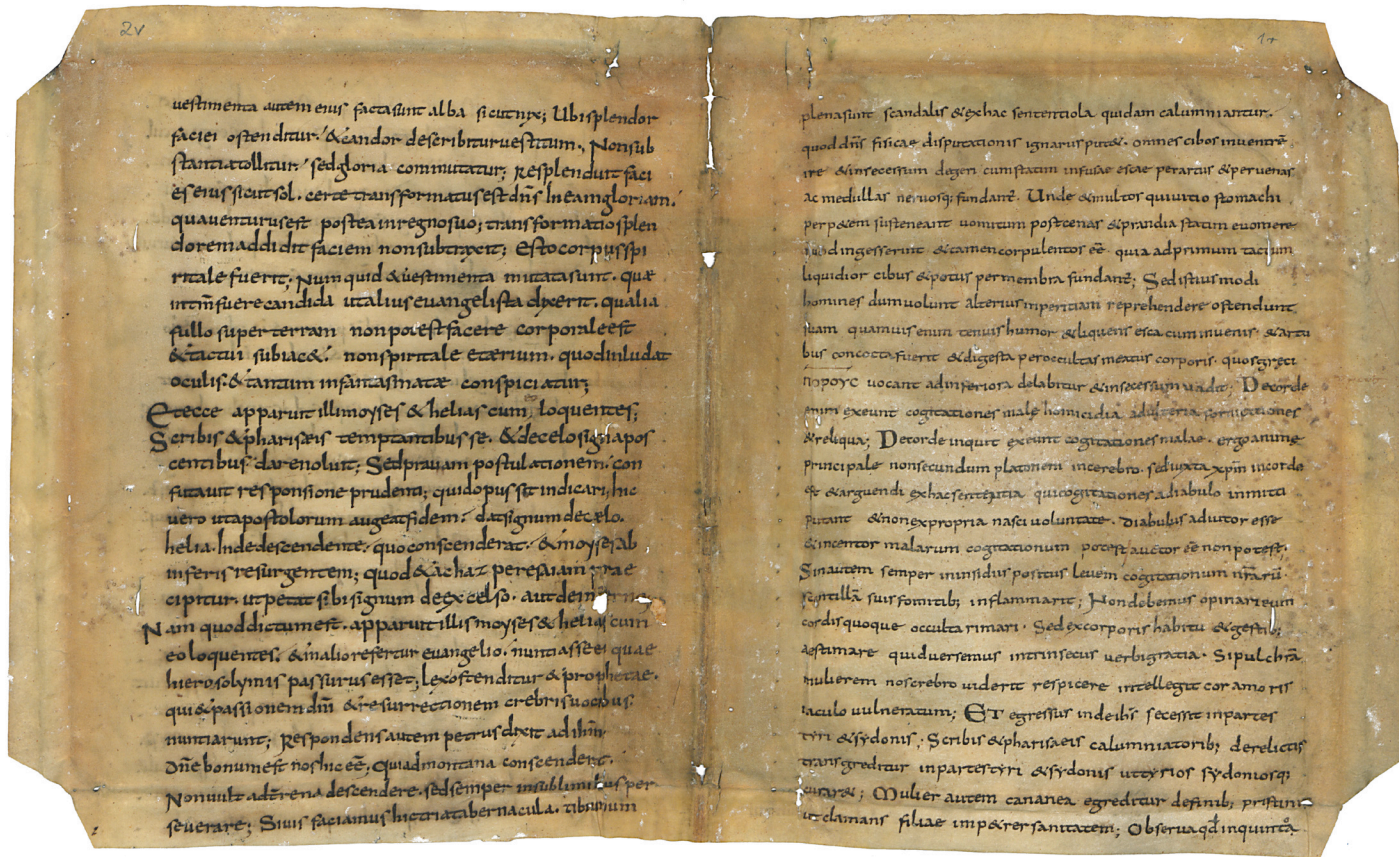 2v
vestimenta autem eius facta sunt alba sicut nix; Ubi splendor
faciei ostenditur. & candor describitur vestium. Non sub
stantia tollitur. sed gloria commutatur; Resplenduit faci
es eius sicut sol. certe transformatus est dns In eam gloriam.
qua venturus est postea in regno suo; transformatio splen
dorem addidit faciem non subtraxit; Esto corpus spi
ritale fuerit; Numquid & vestimenta mutata sunt. quae
intm fuere candida ut alius evangelista dixerit. qualia
fullo super terram non potest facere corporale est
& tactui subiac&. non spiritale et aerium. quod inludat
oculis. & tantum in fantasmatae conspiciatur;
Et ecce apparuit illi moyses & helias cum eo loquentes;
Scribis & phariseis temptantibus se. & de celo signa pos
centibus dare noluit; Sed pravam postulationem con
futavit responsione prudenti; quid opus sit indicari; hic
vero ut apostolorum augeat fidem. dat signum de caelo.
helia. Inde descendente. quo conscenderat. & moyse ab
inferis resurgentem; quod & achaz per esaiam prae
cipitur. ut petat sibi signum de excelso. aut de
Nam quod dictum est. apparuit illis moyses & helias cum
eo loquentes. & in alio refertur evangelio. nuntiasse ei quae
hierosolymis passurus esset; lex ostenditur & prophetae.
qui & passionem dni & resurrectionem crebris vocibus
nuntiarunt; Respondens autem petrus dixit ad ihm
dne bonum est nos hic ee; Qui ad montana conscender&.
Non vult ad terena descendere. sed semper in sublimibus per
severare; Si vis faciamus hic tria tabernacula. tibi unum
1r
plena sunt scandalis & ex hac sententiola quidam calumniantur.
quod dns fisicae disputationis ignarus put&. omnes cibos in ventrē
ire & in secessum degeri cum statim infusae escae per artus & per venas
ac medullas nervosq; fundant. Unde & multos qui vitio stomachi
perp&em susteneant vomitum post cenas & prandia statim evomere
quod ingesserint & tamen corpulentos ee. quia ad primum tactum
liquidior cibus & potus per membra fundant; Sed istius modi
homines dum volunt alterius inperitiam reprehendere ostendunt
suam quamvis enim tenuis humor & liquens esca cum in venis. & artu
bus concocta fuerit & digesta per occultas meatus corporis. quos greci
ΠΟΡΟΥC vocant ad inferiora delabitur & in secessum vadit; De corde
enim exeunt cogitationes malae homicidia adulteria fornicationes
& reliqua; De corde inquit exeunt cogitationes malae. ergo animae
principale non secundum platonem in cerebro. sed iuxta xpm in corde
est & arguendi ex hac sententia qui cogitationes a diabulo inmitti
putant & non ex propria nasci voluntate. Diabulus adiutor esse
& incentor malarum cogitationum potest auctor ee non potest;
Sin autem semper in insidiis positus levem cogitationum nrarū
scintillā suis fomitib; inflammarit; Non debemus opinari eum
cordis quoque occulta rimari. Sed ex corporis habitu & gestib;
aestimare quid versemus intrinsecus verbi gratia. Si pulchrā
mulierem nos crebro viderit respicere intellegit cor amoris
iaculo vulneratum; ET egressus inde ihs secessit in partes
tyri & sydonis; Scribis & pharisaeis calumniatorib; derelictis
transgreditur in partes tyri & sydonis ut tyrios sydoniosq;
curar&; Mulier autem cananea egreditur de finib; pristinis
ut clamans filiae imp&rer sanitatem; Observa qd in quinto